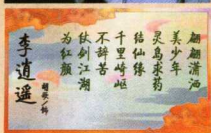 翩翩潇洒
美少年
灵岛求药
结仙缘
千里崎岖
不辞苦
仗剑江湖
为红颜
李逍遥
胡歌/饰